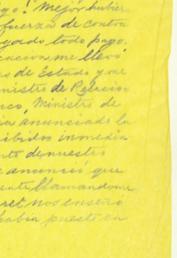 go! Mejor hubier
fuerza de contra
gado todo pago.
me llevó
de Estado y me
nistro de Relacion
nco, Ministro de
ia anunciado la
ibidos inmedia
nto de nuestro
anunció que
ente, llamandome
ret nos enseró
había puesto en